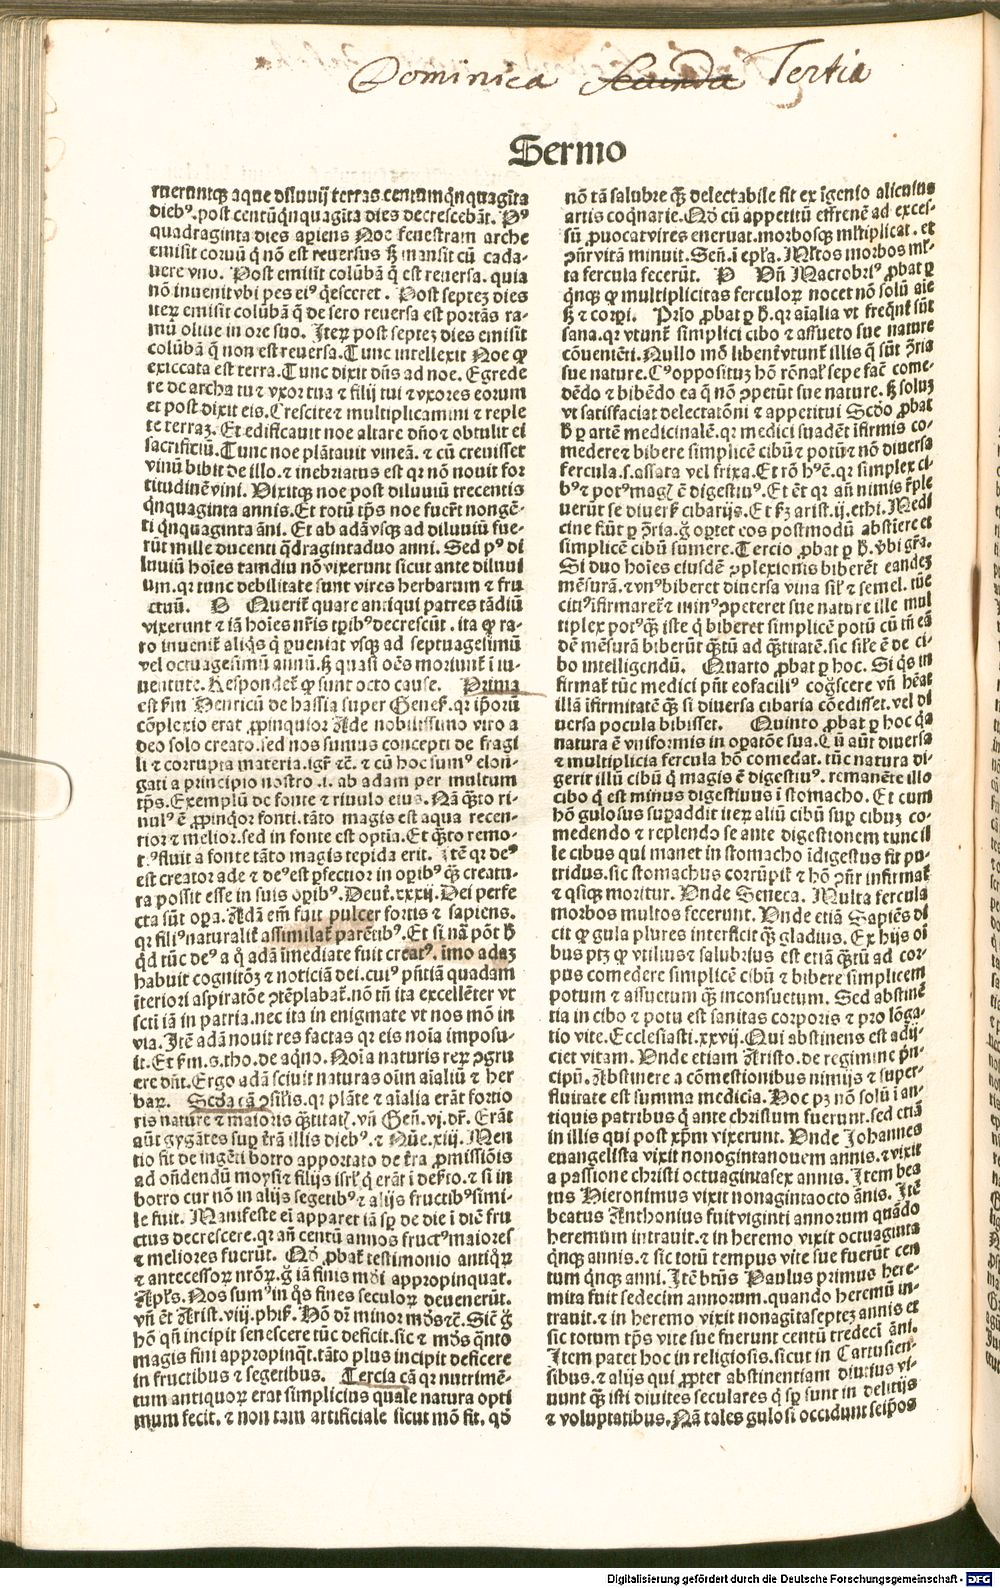 Dominica Secunda Tertia
Sermo
rueruntqꝫ aque diluuiū terras centumqͥnquagīta
diebꝰ.post centūqͥnquagīta dies decrescebāt. Pꝰ
quadraginta dies aperiens Noe fenestram arche
emisit coruū q̄ nō est reuersus sꝫ mansit cū cada-
uere vno. Post emisit colūbā q̄ est reuersa. quia
nō inuenit vbi pes eiꝰ q̄esceret. Post septeꝫ dies
iteꝝ emisit colūbā q̄ de sero reuersa est portās ra-
mū oliue in ore suo. Iteꝝ post septeꝫ dies emisit
colūbā q̄ non est reuersa.Tunc intellexit Noe ꝙ
exiccata est terra.Tunc dixit dn̄s ad noe. Egrede
re de archa tu ⁊ vxor tua ⁊ filij tui ⁊ vxores eorum
et post dixit eis.Crescite ⁊ multiplicamini ⁊ reple
te terraꝫ. Et edificauit noe altare dn̄o ⁊ obtulit ei
sacrificiū.Tunc noe plātauit vineā. ⁊ cū creuisset
vinū bibit de illo.⁊ inebriatus est qꝛ nō nouit for
titudinē vini. Vixitqꝫ noe post diluuiū trecentis
qͥnquaginta annis.Et totū tp̄s noe fuer̄t nongē-
ti qͥnquaginta āni. Et ab adā vsqꝫ ad diluuiū fue-
rūt mille ducenti q̄dragintaduo anni. Sed pꝰ di
luuiū hoīes tamdiu nō vixerunt sicut ante diluui
um.qꝛ tunc debilitate sunt vires herbarum ⁊ fru
ctuū. Querit̄ quare antiqui patres tādiū
vixerunt ⁊ iā hoīes nr̄is tp̄ibꝰ decrescūt. ita ꝙ ra-
ro inuenit̄ aliqͥs q̄ ꝑueniat vsqꝫ ad septuagesimū
vel octuagesimū annū.sꝫ quasi oēs moriunt̄ ī iu-
uentute.Respondet̄ ꝙ sunt octo cause. Prima
est ẜm Henricū de hassia super Genes̄.qꝛ ip̄orū
cōplexio erat ꝓpinquior Ade nobilissimo viro a
deo solo creato.sed nos sumus concepti de fragi
li ⁊ corrupta materia.igr̄ ⁊c̄. ⁊ cū hoc sumꝰ elon-
gati a principio nostro .i. ab adam per multum
tp̄s.Exemplū de fonte ⁊ riuulo eius. Nā q̄to ri-
nulꝰ ē ꝓpinqͥor fonti.tāto magis est aqua recen-
tior ⁊ melior.sed in fonte est optīa.Et q̄sto remo-
tꝰ fluit a fonte tāto magis tepida erit. Itē qꝛ deꝰ
est creator ade ⁊ deꝰ est ꝑfectior in oꝑibꝰ q̄ꝫ creatu-
ra possit esse in suis oꝑibꝰ.Deut̄.xxxij.Dei perfe
cta sūt oꝑa.Adā em̄ fuit pulcer fortis ⁊ sapiens.
qꝛ filiꝰ naturalit̄ assimilat̄ parētibꝰ.Et si nā pōt ꝧ
q̄d tūc deꝰ a q̄ adā īmediate fuit creatꝰ. īmo adaꝫ
habuit cognitōꝫ ⁊ noticiā dei.cuiꝰ pn̄tiā quadam
īteriori aspiratōe ꝯtēplabat̄.nō tn̄ ita excellēter vt
sct̄i iā in patria.nec ita in enigmate vt nos mō in
via.Itē adā nouit res factas qꝛ eis noīa imposu-
it.Et ẜm.s.tho.de aqͥno.Noīa naturis reꝝ ꝯgru
ere dn̄t.Ergo adā sciuit naturas oīm aīaliū ⁊ her
baꝝ. Scd̄a cā ꝯsīlis.qꝛ plāte ⁊ aīalia erāt fortio
ris nature ⁊ maioris q̄ꝫtitatꝭ. vn̄ Gen̄.vj.dr̄. Erāt
aūt gygātes suꝑ t̄rā illis diebꝰ.⁊ Nūe.xiij. Men
tio fit de ingēti botro apportato de t̄ra ꝓmissiōis
ad on̄dendū moysi ⁊ filijs isrl̄ q̄ erāt ī deẜto.⁊ si in
botro cur nō in alijs segetibꝰ ⁊ alijs fructibꝰ simi-
le fuit. Manifeste ei apparet iā sꝑ de die ī diē fru
ctus decrescere.qꝛ an̄ centū annos fructꝰ maiores
⁊ meliores fuerūt. Qd̄ ꝓbat̄ testimonio antiqͦꝝ
⁊ antecessoꝝ nr̄oꝝ.ḡ iā finis mūdi appropinquat.
Apl̄s.Nos sumꝰ in qͦs fines seculoꝝ deuenerūt.
vn̄ ēt Arist.viij.phis̄. Hō dr̄ minor mūdꝰ ⁊c̄. Sic̄ ḡ
hō qn̄ incipit senescere tūc deficit.sic ⁊ mūdꝰ q̄nto
magis fini appropinq̄t.tāto plus incipit deficere
in fructibus ⁊ segetibus. Tercia cā qꝛ nutrimē-
tum antiquoꝝ erat simplicius quale natura opti
mum fecit. ⁊ non tam artificiale sicut mō fit. qd̄
nō tā salubre q̄ꝫ delectabile fit ex īgenio alicuius
artis coqͥnarie.Qd̄ cū appetitū effrenē ad exces-
sū ꝓuocat vires eneruat.morbosqꝫ ml̄tiplicat. et
ꝯn̄r vitā minuit. Sen̄.ī epl̄a. Ml̄tos morbos ml̄-
ta fercula fecerūt. Vn̄ Macrobiꝰ ꝓbat ꝑ
qͥnqꝫ ꝙ multiplicitas ferculoꝝ nocet nō solū aīe
sꝫ ⁊ corꝑi. Prīo ꝓbat ꝑ ꝧ.qꝛ aīalia vt freqn̄t̄ sūt
sana.qꝛ vtunt̄ simplici cibo ⁊ assueto sue nature
cōueniēti.Nullo mō libent̄ vtunt̄ illis q̄ sūt ꝯria
sue nature.Cꝰ oppositūꝫ hō rōnal̄ sepe fac̄ come-
dēdo ⁊ bibēdo ea q̄ nō ꝯpetūt sue nature. sꝫ soluꝫ
vt satisfaciat delectatōni ⁊ appetitui Scd̄o ꝓbat
ꝧ ꝑ artē medicinalē.qꝛ medici suadēt īfirmis co-
medere ⁊ bibere simplicē cibū ⁊ potū ⁊ nō diuersa
fercula.s.assata vel frixa.Et rō hꝰ ē.qꝛ simplex ci-
bꝰ ⁊ potꝰ magꝭ ē digestiuꝰ.Et ēt qꝛ an̄ nimis ẜple
uerūt se diuers̄ cibarijs.Et ẜꝫ arist.ij.ethi.Medi
cine fiūt ꝑ ꝯria.ḡ oꝑtet eos postmodū abstīere et
simplicē cibū sumere.Tercio ꝓbat ꝑ ꝧ.ꝟbi gr̄a.
Si duo hoīes eiusdē ꝯplexionis biberēt eandeꝫ
mēsurā.⁊ vnꝰ biberet diuersa vina sil̄ ⁊ semel. tūc
citiꝰ īfirmaret̄ ⁊ minꝰ ꝯpeteret sue nature ille mul
tiplex potꝰ q̄ꝫ iste q̄ biberet simplicē potū cū tn̄ eā
dē mēsurā biberūt q̄ꝫtū ad q̄ꝫtitatē.sic sīle ē de ci-
bo intelligendū. Quarto ꝓbat ꝑ hoc. Si qͥs in
firmat̄ tūc medici pn̄t eo faciliꝰ cog̊scere vn̄ hēat
illā īfirmitatē q̄ꝫ si diuersa cibaria cōedisset.vel di
uersa pocula bibisset. Quinto ꝓbat ꝑ hoc q̄a
natura ē vniformis in oꝑatōe sua.Cū aūt diuersa
⁊ multiplicia fercula hō comedat. tūc natura di
gerit illū cibū q̄ magis ē digestiuꝰ. remanēte illo
cibo q̄ est minus digestiuus ī stomacho. Et cum
hō gulosus suꝑaddit iteꝝ aliū cibū suꝑ cibuꝫ co-
medendo ⁊ replendo se ante digestionem tunc il
le cibus qui manet in stomacho īdigestus fit pu-
tridus.sic stomachus corrūpit̄ ⁊ hō ꝯn̄r infirmat̄
⁊ qn̄qꝫ moritur. Vnde Seneca. Multa fercula
morbos multos fecerunt. Vnde etiā Sapiēs di
cit ꝙ gula plures interficit q̄ꝫ gladius. Ex hijs oī
bus ptꝫ ꝙ vtilius ⁊ salubrius est etiā q̄ꝫtū ad cor-
pus comedere simplicē cibū ⁊ bibere simplicem
potum ⁊ assuetum q̄ꝫ inconsuetum. Sed abstinē
tia in cibo ⁊ potu est sanitas corporis ⁊ ꝓlōga-
tio vite.Ecclesiasti.xxvij.Qui abstinens est adij-
ciet vitam. Vnde etiam Aristo.de regimine pͥn-
cipū.Abstinere a cōmestionibus nimijs ⁊ super-
fluitate est summa medicīa.Hoc pꝫ nō solū ī an-
tiquis patribus q̄ ante christum fuerunt.sed etiā
in illis qui post xp̄m vixerunt. Vnde Johannes
euangelista vixit nonagintanouem annis.⁊ vixit
a passione christi octuagintasex annis. Item bea
tus Hieronimus vixit nonagintaocto ānis. Itē
beatus Anthonius fuit viginti annorum quādo
heremum intrauit.⁊ in heremo vixit octuaginta
qͥnqꝫ annis.⁊ sic totū tempus vite sue fuerūt cen
tum qͥnqꝫ anni.Itē btūs Paulus primus here-
mita fuit sedecim annorum.quando heremū in-
trauit.⁊ in heremo vixit nonagītasepteꝫ annis et
sic totum tp̄s vite sue fuerunt centū tredecī āni.
Item patet hoc in religiosis.sicut in Cartusien-
sibus.⁊ alijs qui ꝓpter abstinentiam diutius vi-
uunt q̄ꝫ isti diuites seculares q̄ sꝑ sunt in delitijs
⁊ voluptatibus.Nā tales gulosi occidunt seip̄os
Digitalisierung gefördert durch die Deutsche Forschungsgemeinschaft - DFG